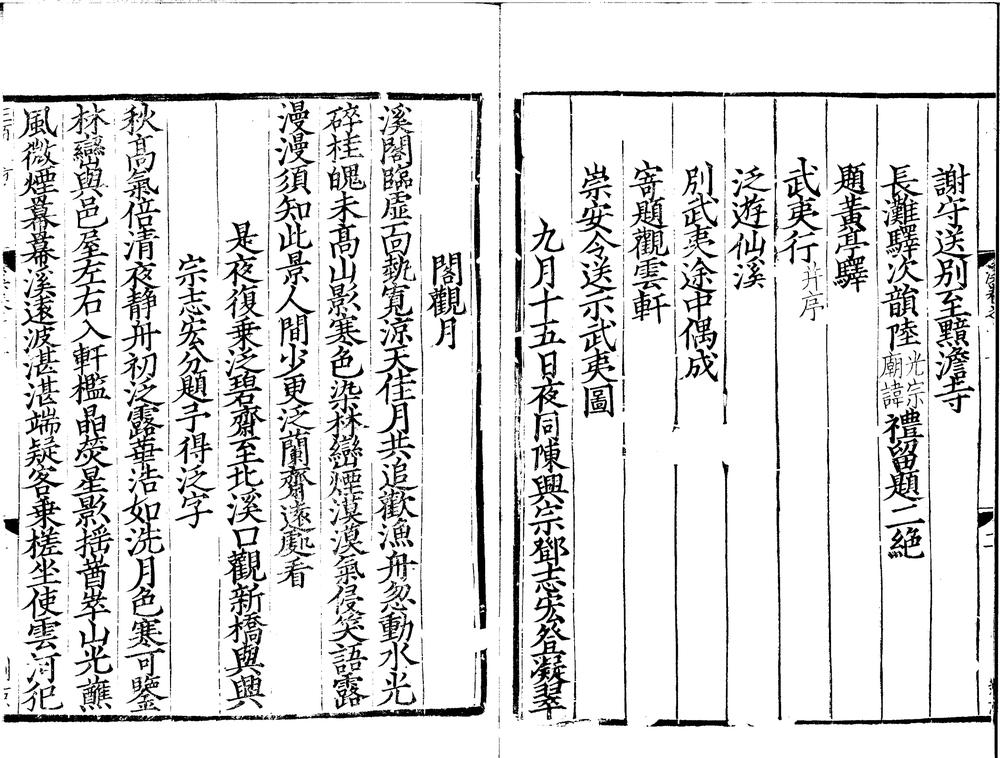 謝守送別至黯澹寺
長灘驛次韻陸光宗廟諱禮留題二絶
題黃亭驛
武夷行并序
泛遊仙溪
別武夷途中偶成
寄題觀雲軒
崇安令送示武夷圖
九月十五日夜同陳興宗鄧志宏登凝翠
閣觀月
溪閣臨虛面勢寬涼天佳月共追歡漁舟忽動水光
碎桂魄未高山影寒色染林巒煙漠漠氣侵笑語露
漫漫須知此景人間少更泛蘭齋遠處看
是夜復乗泛碧齋至北溪口觀新橋與興
宗志宏分題予得泛字
秋高氣倍清夜静舟初泛露華浩如洗月色寒可鑒
林巒與邑屋左右入軒檻晶熒星影揺崷崒山光蘸
風微煙羃羃溪遠波湛湛端疑客乗槎坐使雲河犯